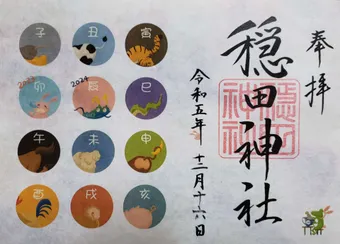 奉拝
穏田神社
令和五年 十二月十六日
子 丑 寅
2023 2024
卯 辰 巳
午 未 申
酉 戌 亥